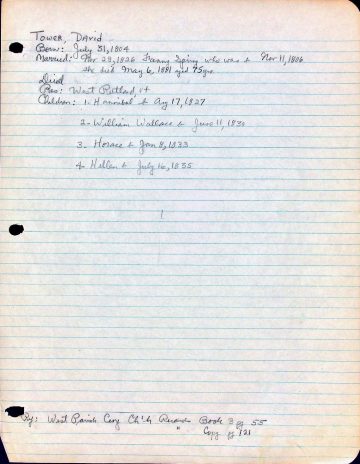 Tower, David
Born: July 31, 1804
Married: Nov 28, 1826 Fanny Spring who was b Nov 11, 1806
She died May 6, 1881 aged 75 yrs
Died
Res: West Rutland, Vt
Children: 1. Hannibal b Aug 17, 1827
2- William Wallace b June 11, 1830
3. Horace b Jan 8, 1833
4- Hellen b July 16, 1835
West Parish Cong Ch'h Records Book 3 pg 55
" Copy pg 121